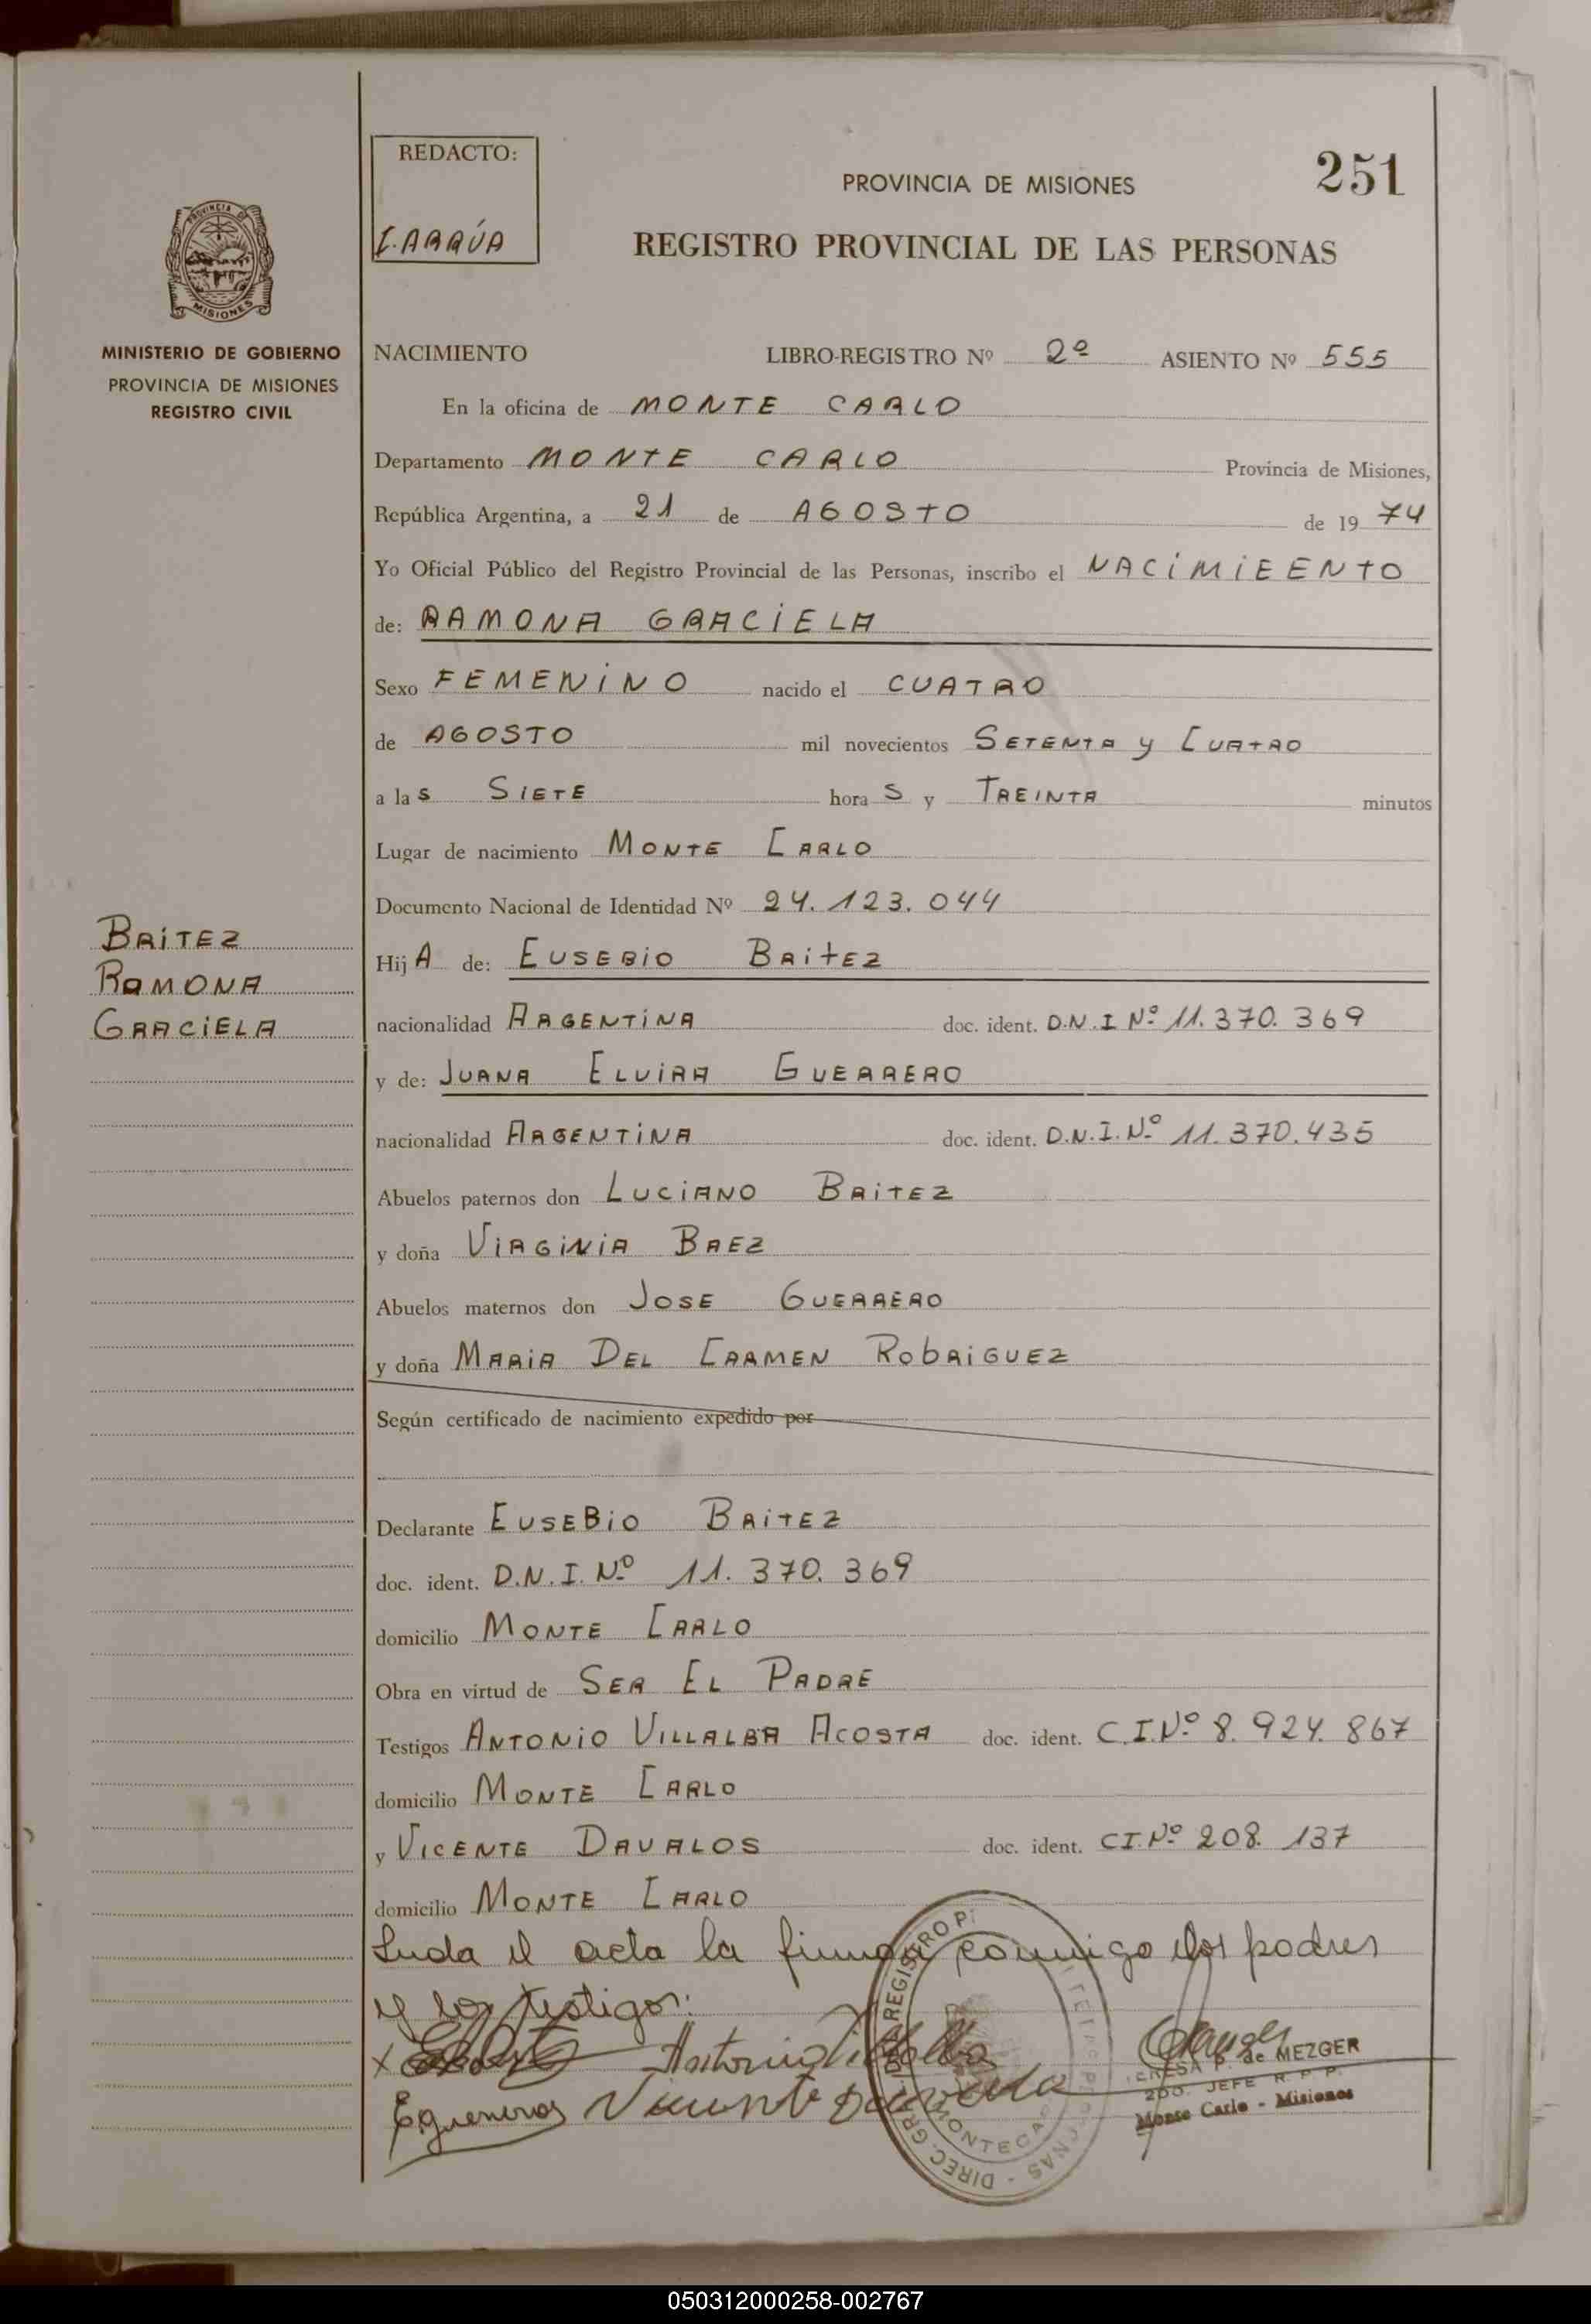 REDACTO:
I. ARRÚA
PROVINCIA DE MISIONES
251
REGISTRO PROVINCIAL DE LAS PERSONAS
PROVINCIA DE
MISIONES
MINISTERIO DE GOBIERNO
PROVINCIA DE MISIONES
REGISTRO CIVIL
NACIMIENTO LIBRO-REGISTRO Nº 2º ASIENTO Nº 555
En la oficina de MONTE CARLO
Departamento MONTE CARLO Provincia de Misiones,
República Argentina, a 21 de AGOSTO de 1974
Yo Oficial Público del Registro Provincial de las Personas, inscribo el NACIMIEENTO
de: RAMONA GRACIELA
Sexo FEMENINO nacido el CUATRO
de AGOSTO mil novecientos SETENTA y CUATRO
a las SIETE horas y TREINTA minutos
Lugar de nacimiento MONTE CARLO
Documento Nacional de Identidad Nº 24.123.044
BRITEZ
RAMONA
GRACIELA
HijA de: EUSEBIO BRITEZ
nacionalidad ARGENTINA doc. ident. D.N.I Nº 11.370.369
y de: JUANA ELVIRA GUERRERO
nacionalidad ARGENTINA doc. ident. D.N.I. Nº 11.370.435
Abuelos paternos don LUCIANO BRITEZ
y doña VIRGINIA BAEZ
Abuelos maternos don JOSE GUERRERO
y doña MARIA DEL CARMEN RODRIGUEZ
Según certificado de nacimiento expedido por
Declarante EUSEBIO BRITEZ
doc. ident. D.N.I. Nº 11.370.369
domicilio MONTE CARLO
Obra en virtud de SER EL PADRE
Testigos ANTONIO VILLALBA ACOSTA doc. ident. C.I.Nº 8.924.867
domicilio MONTE CARLO
y VICENTE DAVALOS doc. ident. CI.Nº 208.137
domicilio MONTE CARLO
Leida el acta la firman conmigo los padres
y los testigos:
Antonio Villalba
Vicente Davalos
DIREC. GRAL. REGISTRO P.
MONTECA
P. de MEZGER
2DO. JEFE R. P. P.
Monte Carlo - Misiones
050312000258-002767